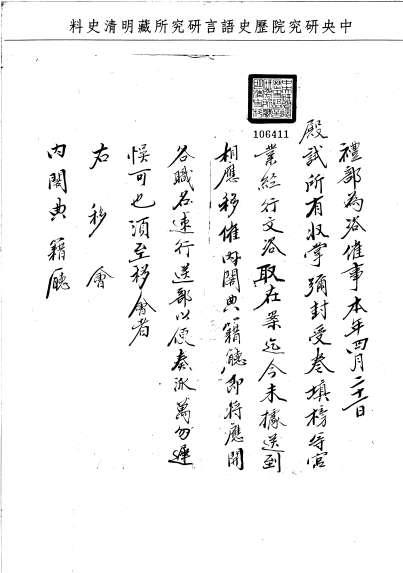 中央研究院歷史語言研究所藏明清史料
106411
禮部為咨催事本年四月二十一日
殿試所有收掌彌封受卷填榜等官
業經行文咨取在案迄今未據送到
相應移催內閣典籍廳即將應開
各職名速行送部以便奏派萬勿遲
悞可也須至移會者
右移會
內閣典籍廳